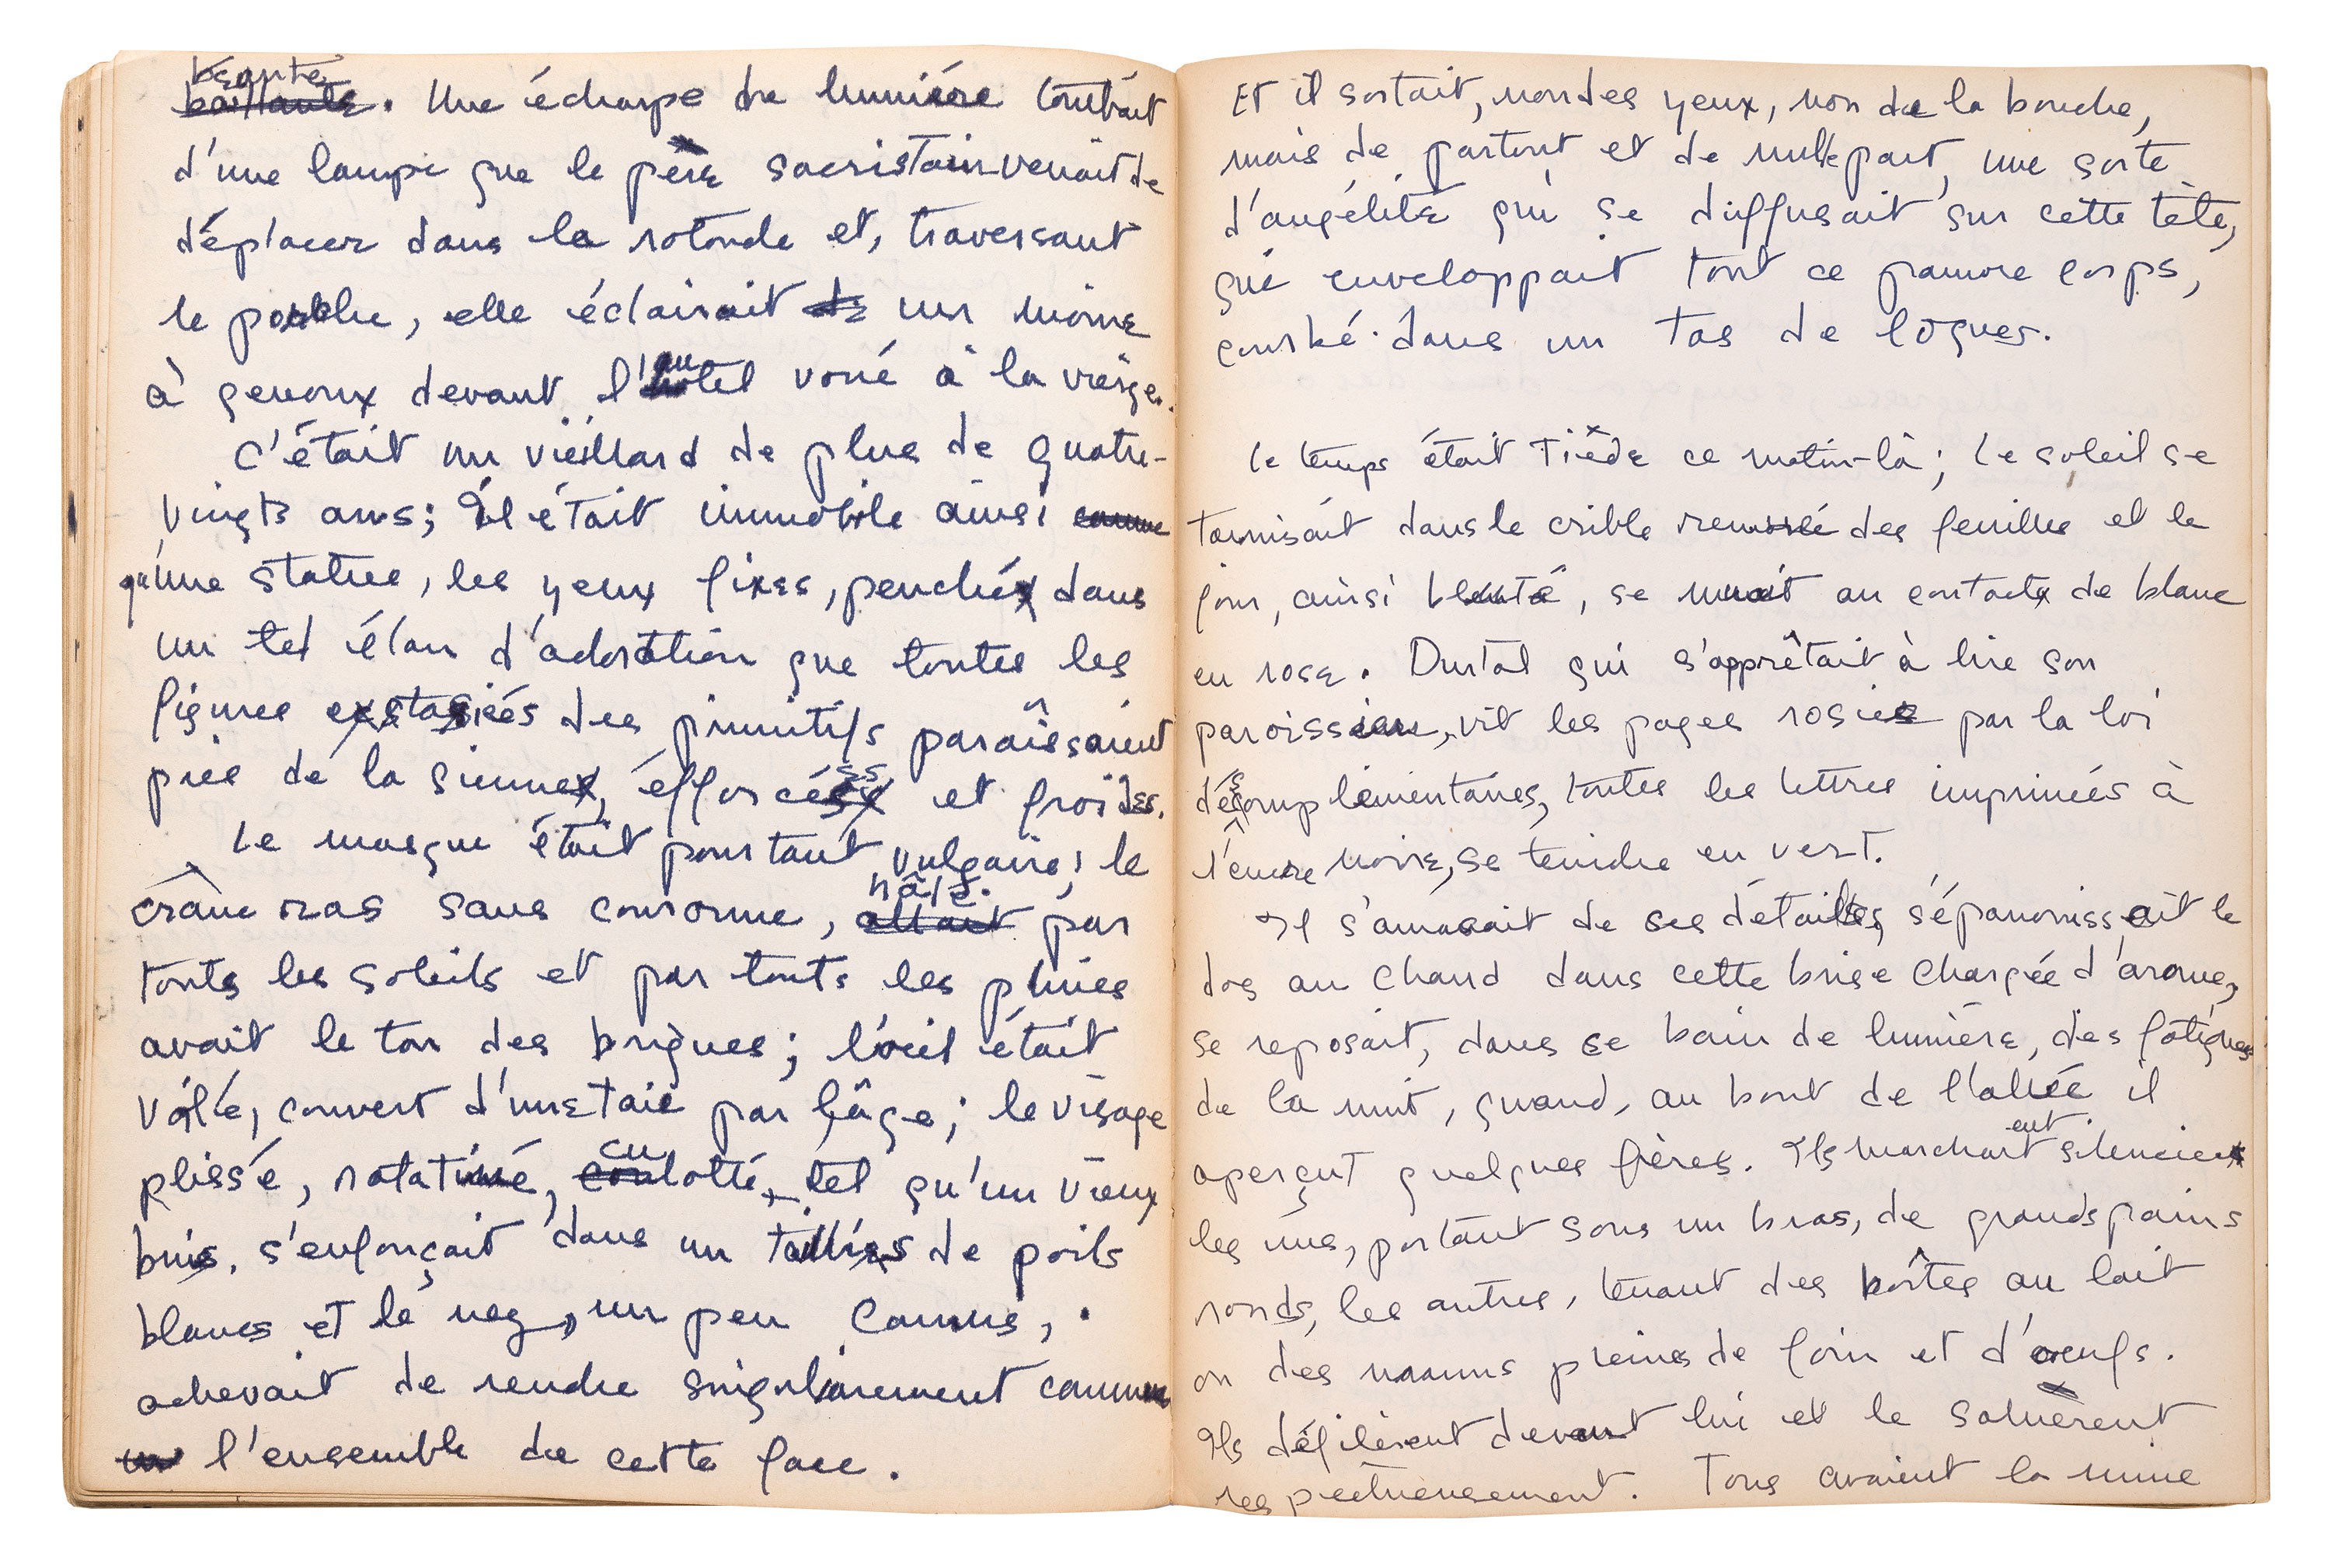 béante
baillante. Une écharpe de lumière tombait
d'une lampe que le père sacristain venait de
déplacer dans la rotonde et, traversant
le porche, elle éclairait de un moine
à genoux devant l'autel voué à la vièrge.
C'était un vieillard de plus de quatre-
vingts ans; Il était immobile ainsi comme
qu'une statue, les yeux fixes, penché dans
un tel élan d'adoration que toutes les
figures extasiées des primitifs paraîssaient
près de la sienne, éfforcées et froides.
Le masque était pourtant vulgaire; le
crâne ras sans couronne, hâlé
allait par
touts les soleils et par touts les pluies
avait le ton des briques; l'oeil était
voilé, couvert d'une taie par l'âge; le visage
plissé, ratatiné, culotté, tel qu'un vieux
buis, s'enfonçait dans un taillis de poils
blancs et le nez, un peu camus,
achevait de rendre singulièrement commun
l'ensemble de cette face.
Et il sortait, non des yeux, non de la bouche,
mais de partout et de nulle part, une sorte
d'angélité qui se diffusait sur cette tête,
qui enveloppait tout ce pauvre corps,
courbé dans un tas de loques.
Le temps était tiède ce matin-là; le soleil se
tamisait dans le crible remué des feuilles et le
jour, ainsi bluté, se muait au contact de blanc
en rose. Durtal qui s'apprêtait à lire son
paroissien, vit les pages rosies par la loi
des complémentaires, toutes les lettres imprimées à
l'encre noire, se teindre en vert.
Il s'amusait de ses détails, s'épanouissait le
dos au chaud dans cette brise chargée d'arome,
se reposait, dans se bain de lumière, des fatigues
de la nuit, quand, au bout de l'allée il
aperçut quelques frères. Ils marchaient silencieux
les uns, portant sous un bras, de grands pains
ronds, les autres, tenant des boîtes au lait
ou des mannes pleines de foin et d'oeufs.
Ils défilèrent devant lui et le saluèrent
respectueusement. Tous avaient la mine